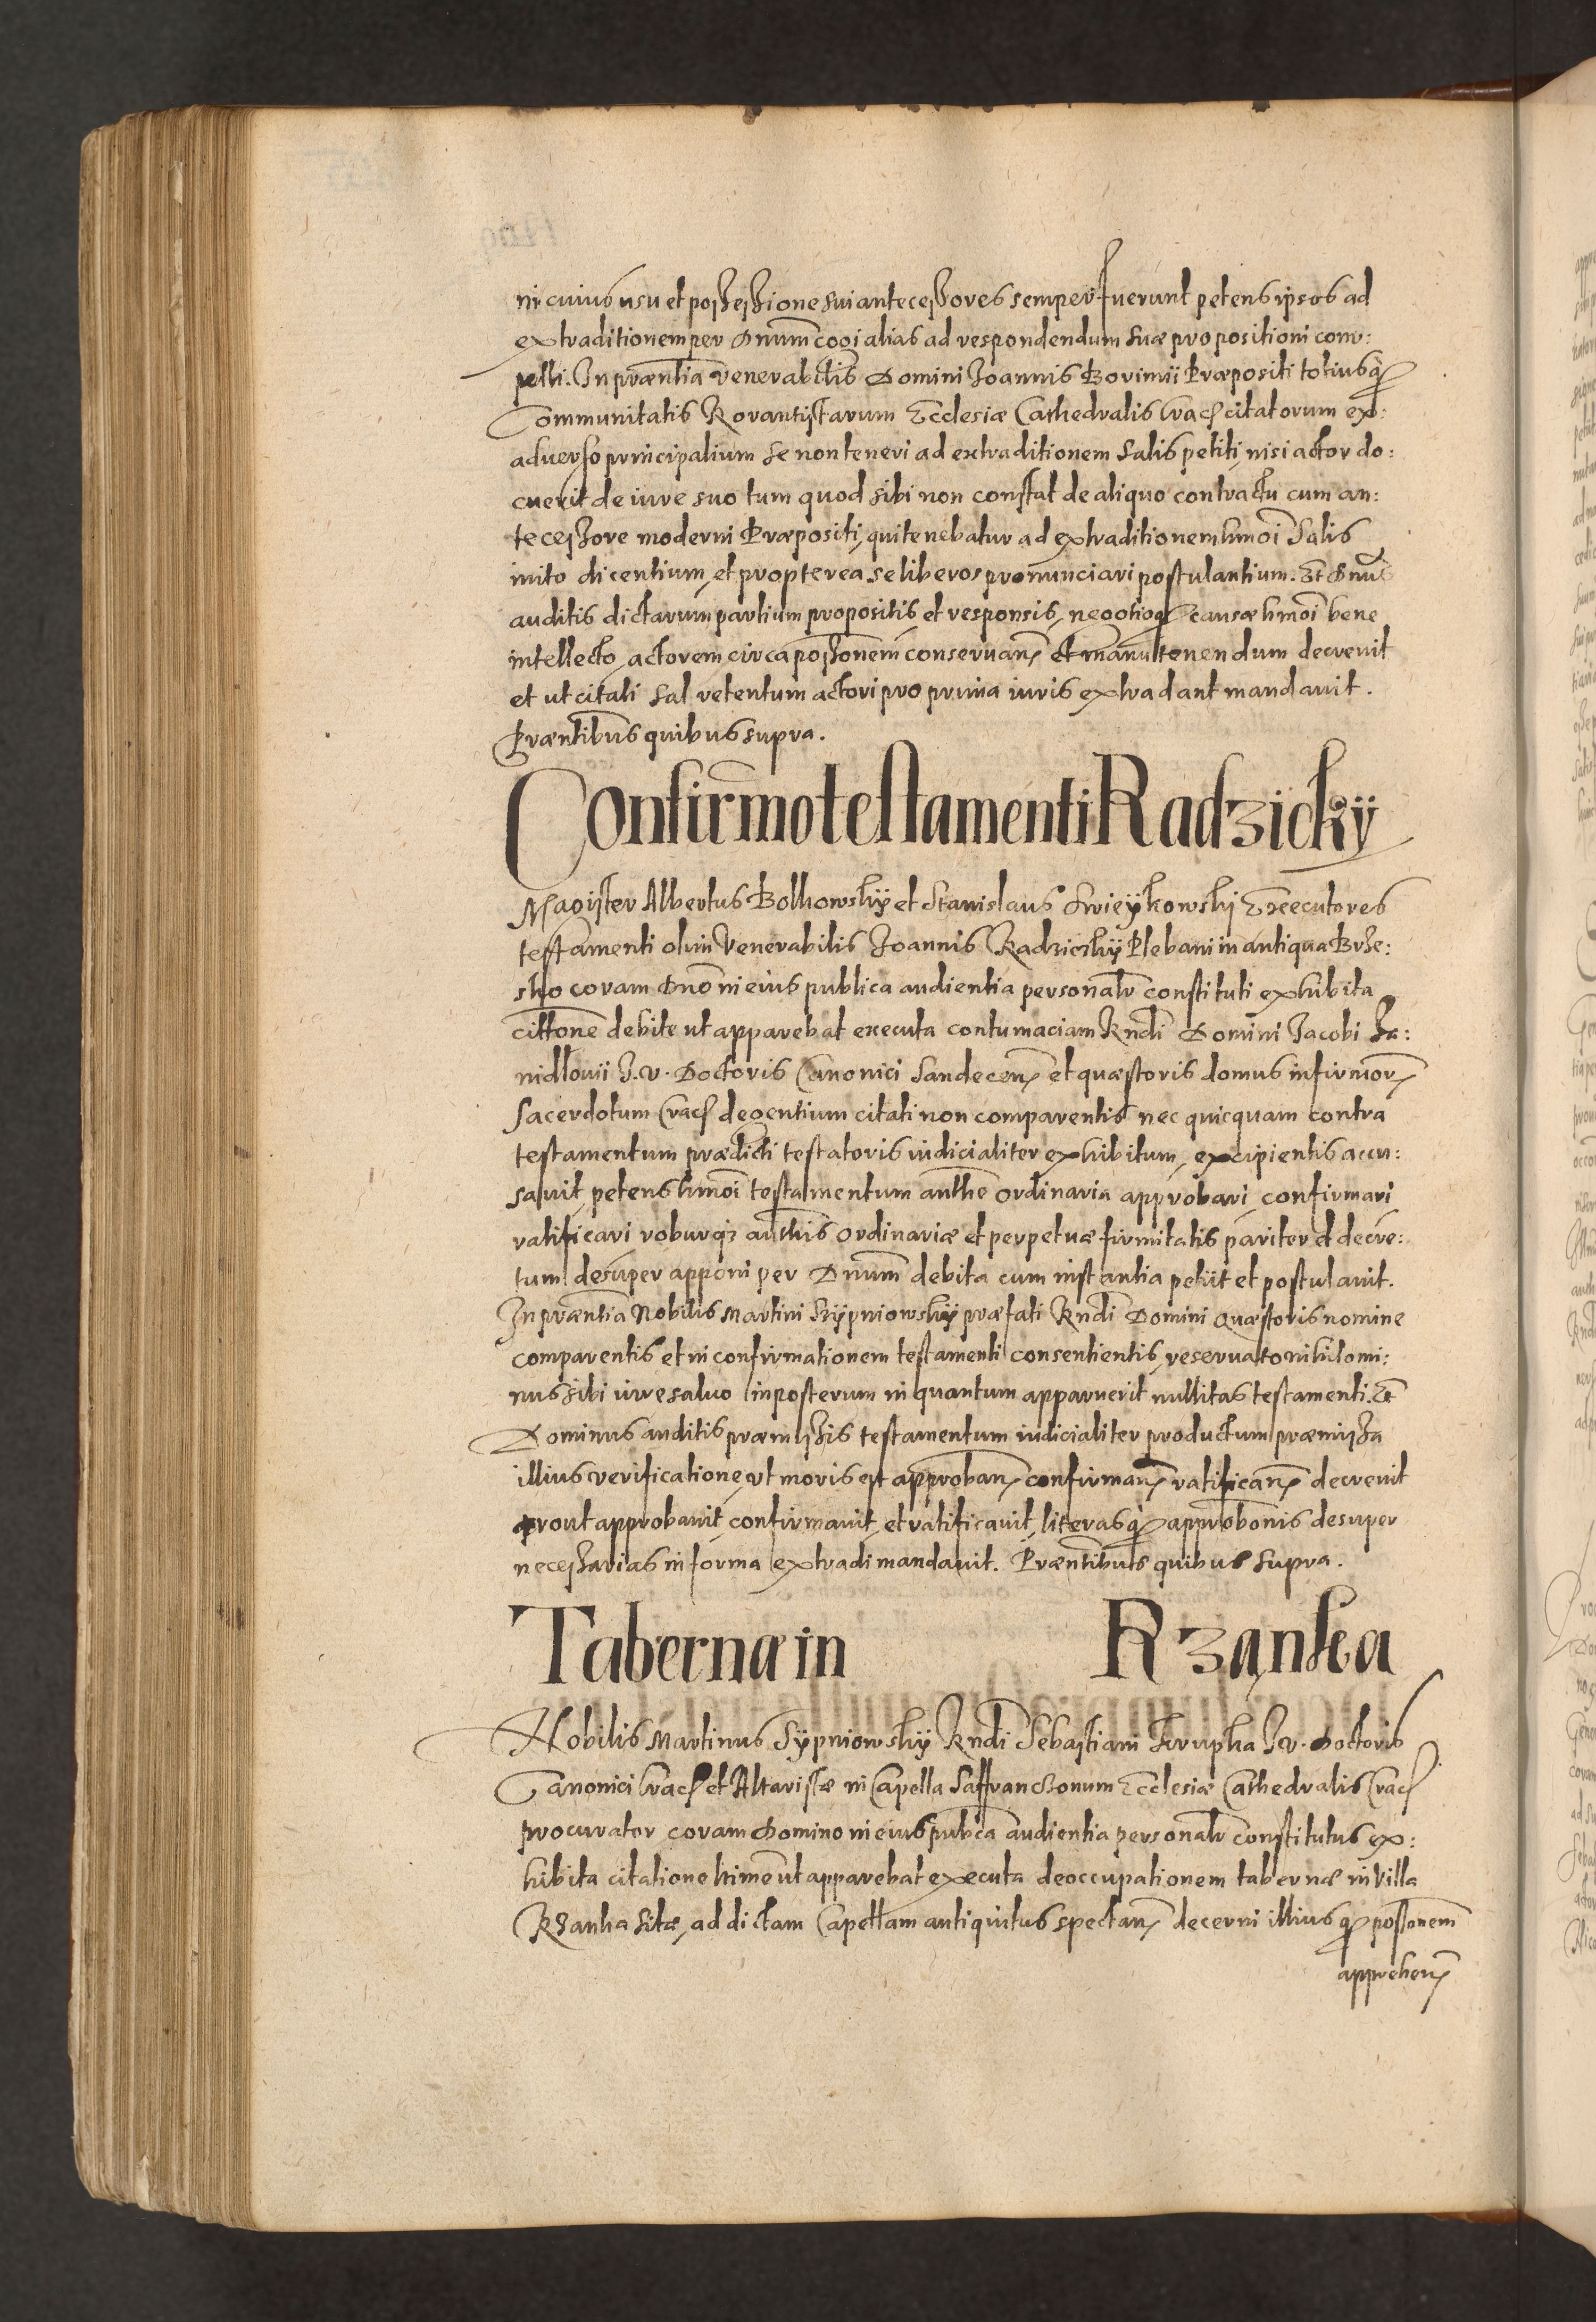 in cuius usu et possessione sui antecessores semper fuerunt petens ipsos ad
extraditionem per Dnum cogi alias ad respondendum suæ propositioni com:
pelli. In præntia Venerabilis Domini Joannis Borimii Præpositi totiusq̃
Communitatis Rorantistarum Ecclesiæ Cathedralis Crac̃ citatorum ex
aduerso principalium se non teneri ad extraditionem salis petiti, nisi actor do:
cuerit de iure suo tum quod sibi non constat de aliquo contractu cum an:
tecessore moderni Præpositi, qui tenebatur ad extraditionem hmoi Salis
imito dicentium, et propterea se liberos pronunciari postulantium. Et Dnus
auditis dictarum partium propositis, et responsis, negotioq̃ causæ hmoi bene
intellecto, actorem circa possonem conseruan̄ et manutenendum decreuit
et ut citati sal retentum actori pro prima iuris extradant mandauit.
Præntibus quibus supra.
Confirmo testamenti Radzickÿ
Magister Albertus Bolkowskÿ et Stanislaus Swieÿkowskÿ Executores
testamenti olim Venerabilis Joannis Radzickÿ Plebani in antiqua Brze:
sko coram Dno in eius publica audientia personalr constituti exhibita
cittone debite ut apparebat executa contumaciam Rndi Domini Jacobi Ja:
nidlouii J. V. Doctoris Canonici Sandecen̄ et quæstoris domus infirmor̄
Sacerdotum Crac̃ degentium citati non comparentis nec quicquam contra
testamentum prædicti testatoris iudicialiter exhibitum, excipientis accu:
sauit, petens hmoi testamentum authe ordinaria approbari, confirmari
ratificari roburq3 authis ordinariæ et perpetuæ firmitatis pariter et decre:
tum desuper apponi per Dnum debita cum instantia petiit et postulauit.
In præntia Nobilis Martini Sÿpniowskÿ præfati Rndi Domini Quæstoris nomine
comparentis et in confirmationem testamenti consentientis, reseruato nihilomi:
nus sibi iure saluo inposterum in quantum apparuerit nullitas testamenti. Et
Dominus auditis præmissis testamentum iudicialiter productum præmissa
illius verificatione, ut moris est approban̄ confirman̄ ratifican̄ decreuit
prout approbauit, confirmauit, et ratificauit, literasq̃ approbonis desuper
necessarias in forma extradi mandauit. Præntibus quibus supra.
Tabernæ in Rzanka
Nobilis Martinus Sÿpniowskÿ Rndi Sebastiani Krupka J. V. Doctoris
Canonici Crac̃ et Altaristæ in Capella Saffranczonum Ecclesiæ Cathedralis Crac̃
procurator coram Domino in eius pubca audientia personalr constitutus ex:
hibita citatione ltime ut apparebat executa deoccupationem tabernæ in Villa
Rzanka sitæ, ad dictam Capellam antiquitus spectan̄ decerni illiusq̃ possonem
apprehen̄